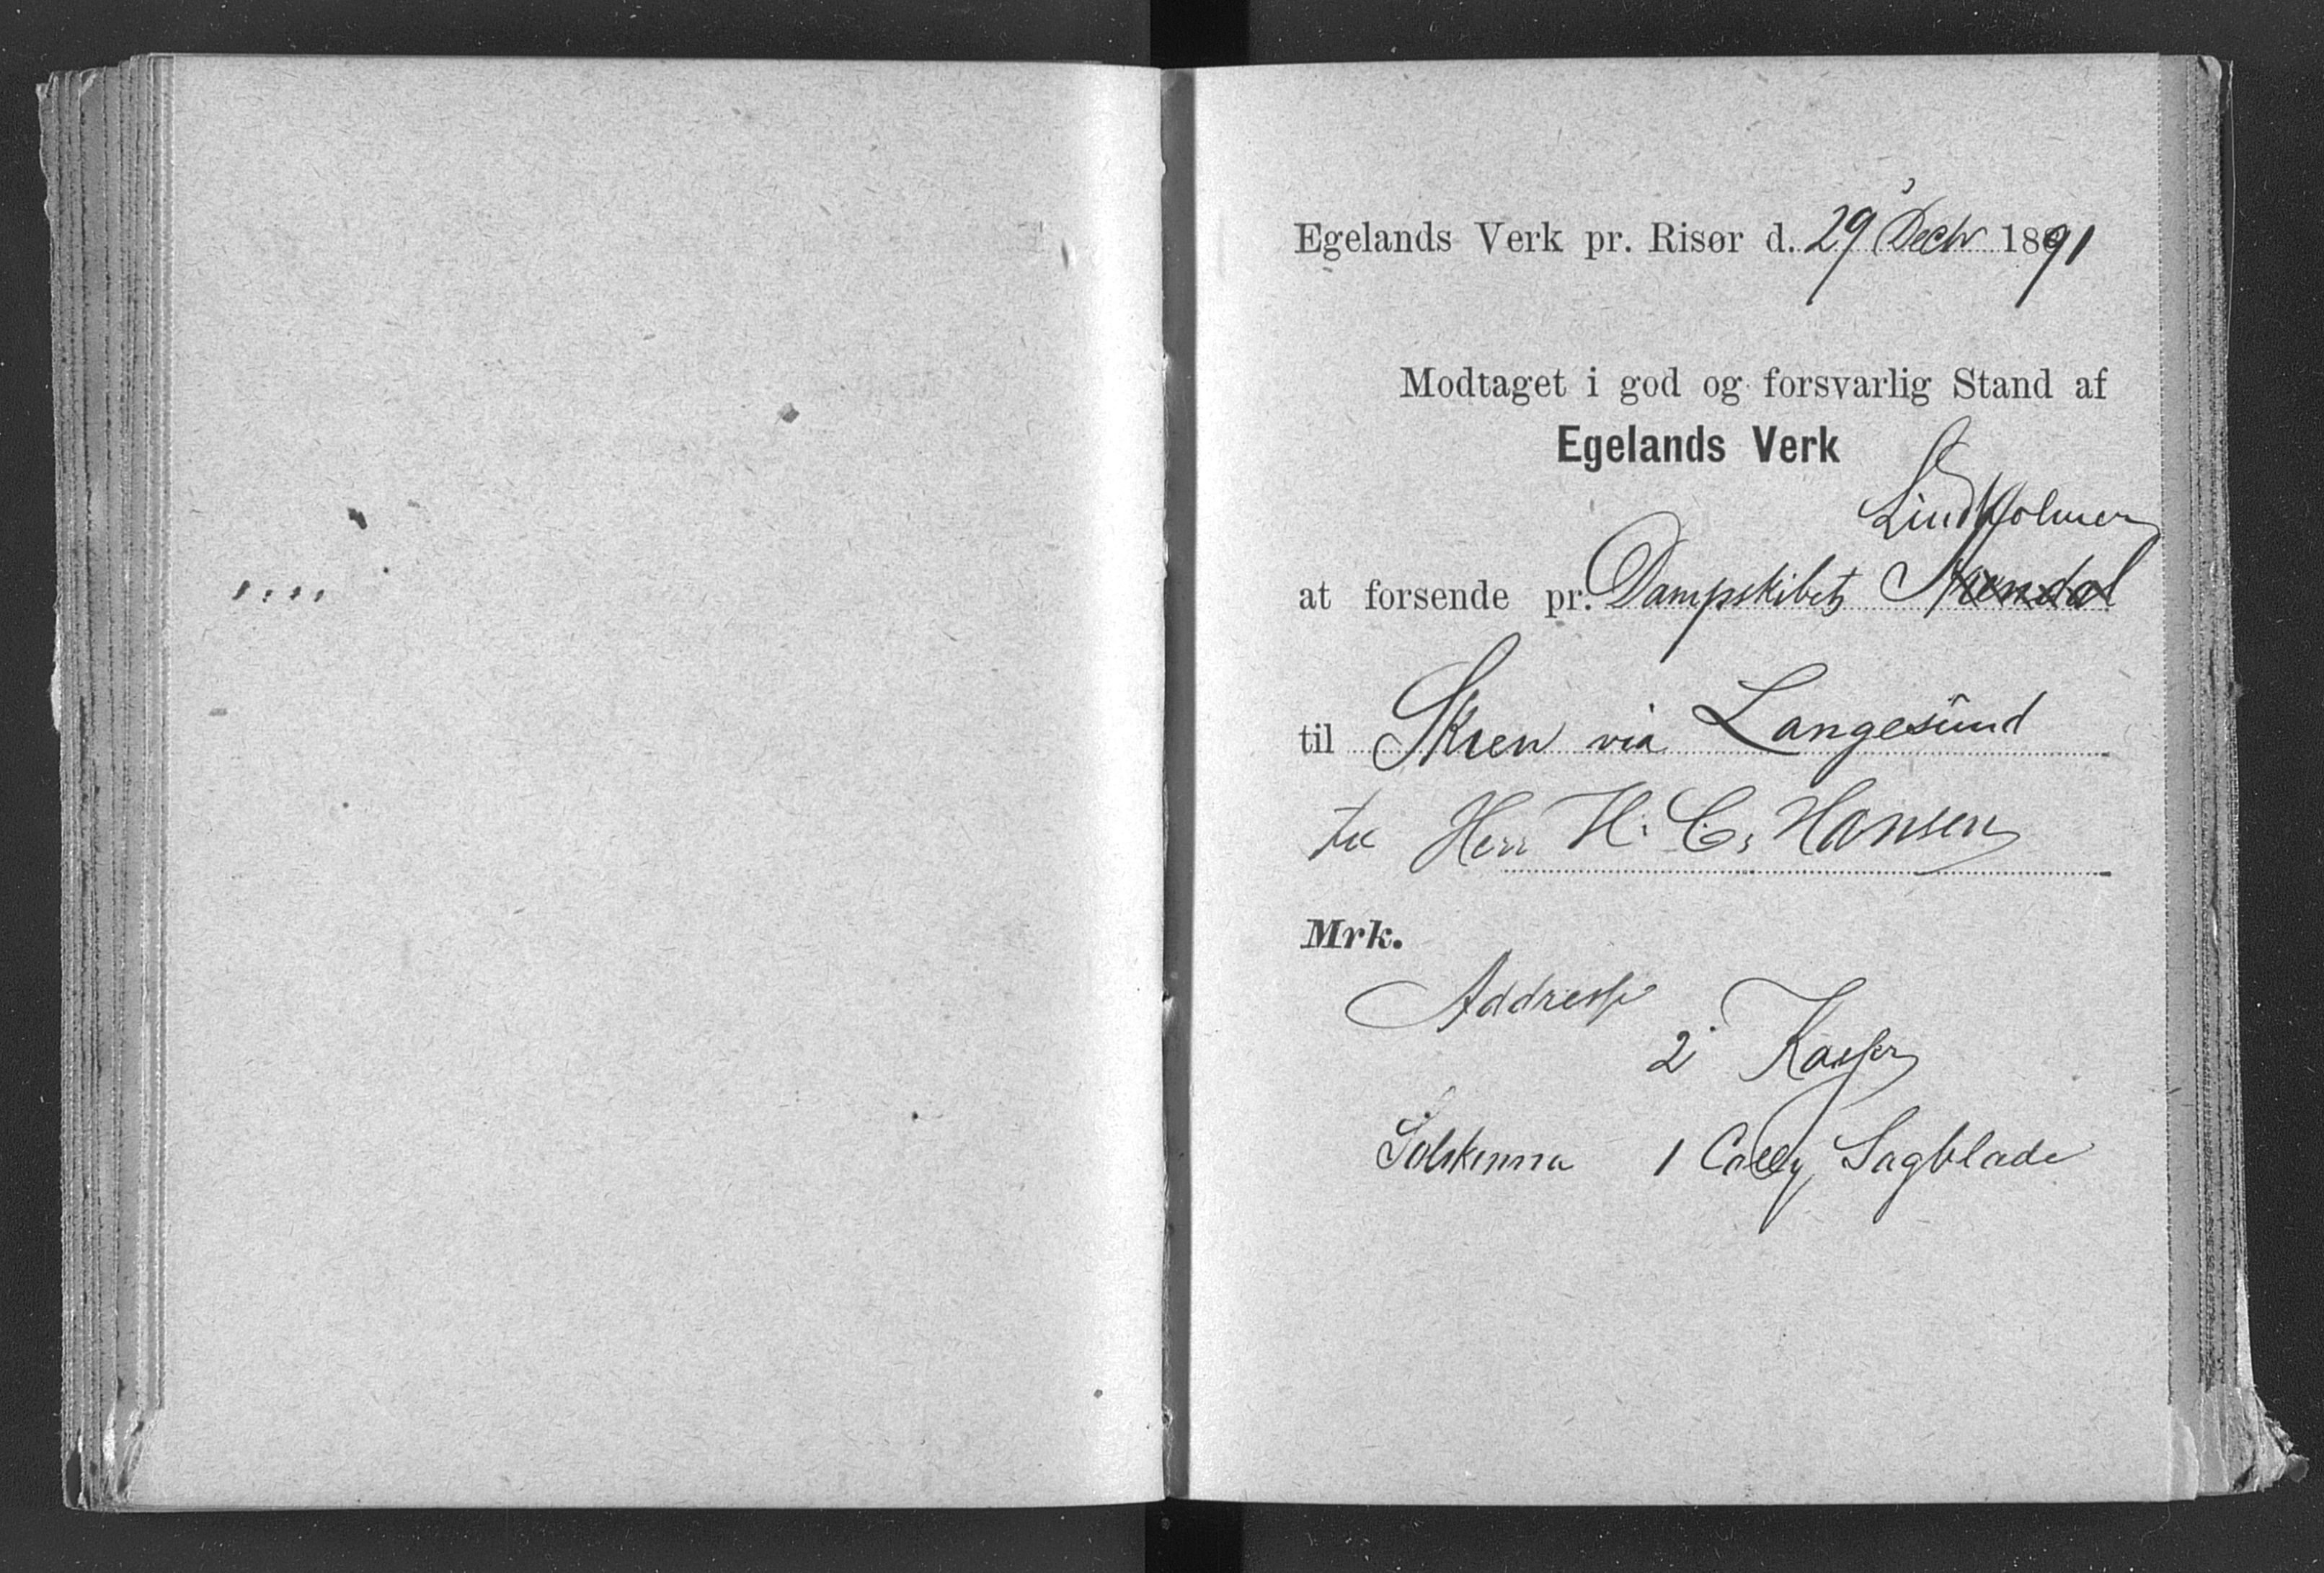 Egelands Verk pr. Risør d. 29 Decbr 1891
Modtaget i god og forsvarlig Stand af
Egelands Verk
Lindholmen
at forsende pr. Dampskibet Arendal
til Skien via Langesund
til Herr H. C. Hansen
Mrk.
Addresse
2 Kasser
1 Colly Sagblade